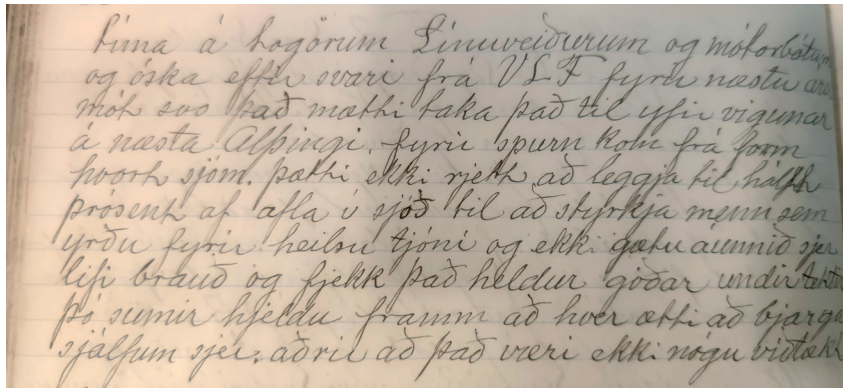 tíma á togörum Línuveiðurum og mótorbátum
og óska eftir svari frá VLF fyrir næstu ara
mót svo það mætti taka það til yfir vigunar
á næsta Alþingi, fyrir spurn kom frá form
hvort sjóm. þætti ekki rjett að leggja til hálft
prósent af afla í sjóð til að styrkja menn sem
yrðu fyrir heilsu tjóni og ekki gætu áunnið sjer
lifi brauð og fjekk það heldur góðar undir tektir
þó sumir hjeldu framm að hver ætti að bjarga
sjálfum sjer. aðrir að það væri ekki nógu viðtækt